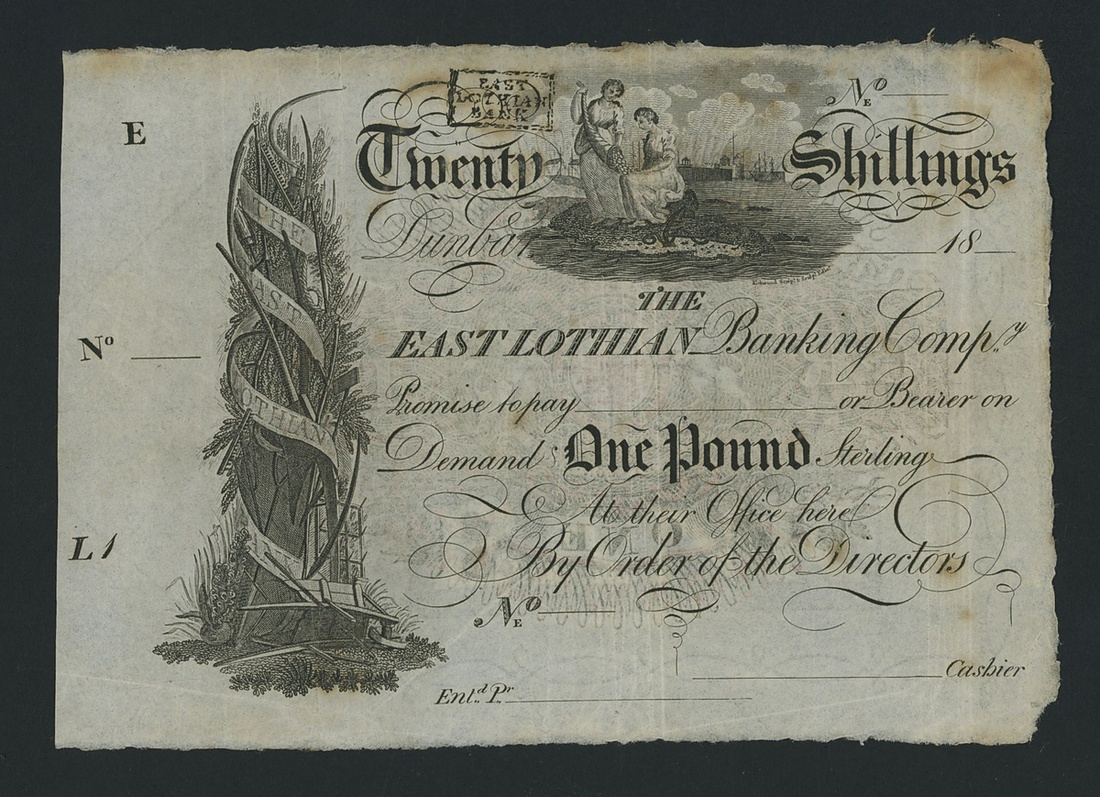 E
EAST
LOTHIAN
BANK
Nº
E
Twenty Shillings
Dunbar 18
THE
EAST LOTHIAN Banking Compy
Promise to pay or Bearer on
Demand One Pound Sterling
At their Office here
By Order of the Directors
Nº
E
Cashier
Entd. Pr.
Nº
L 1
THE
AST
OTHIAN